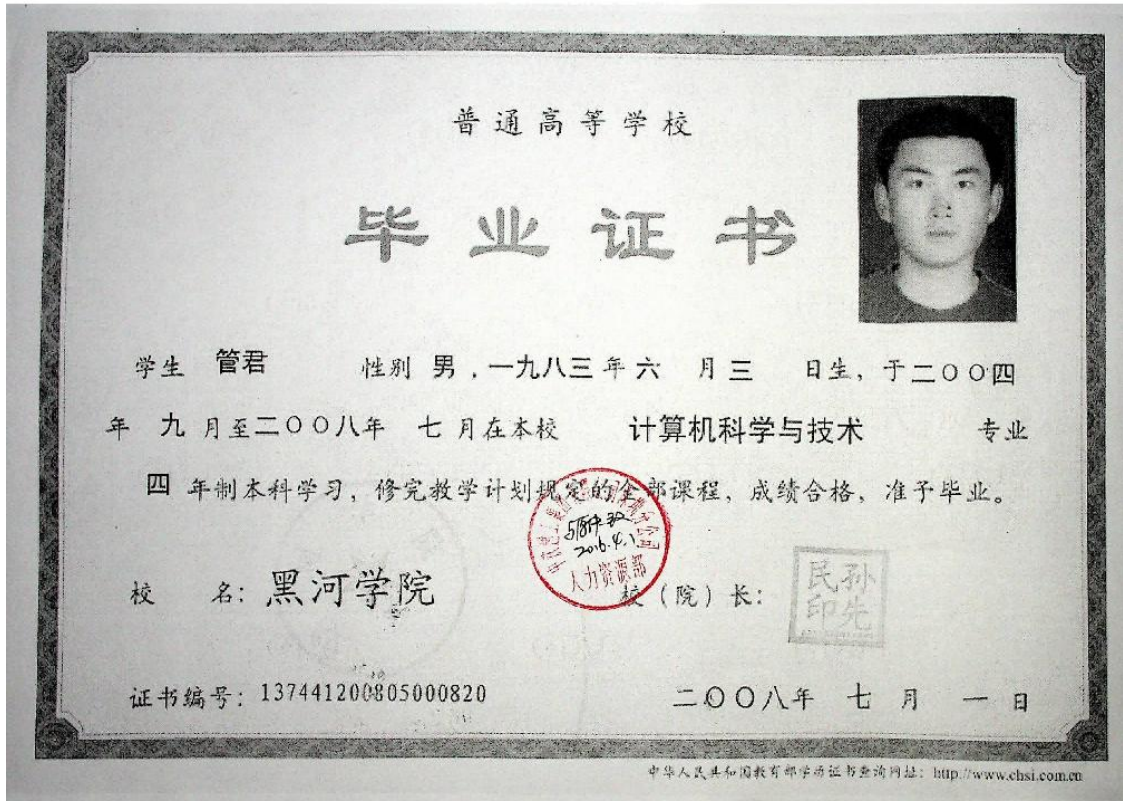 普通高等学校
毕业证书
学生 管君 性别 男，一九八三年六 月三 日生，于二〇〇四
年 九 月至二〇〇八年 七 月在本校 计算机科学与技术 专业
四 年制本科学习，修完教学计划规定的全部课程，成绩合格，准予毕业。
2016.4.1
人力资源部
校 名：黑河学院 校（院）长：
孙先
民印
证书编号：137441200805000820 二〇〇八年 七 月 一 日
中华人民共和国教育部学历证书查询网址：http://www.chsi.com.cn